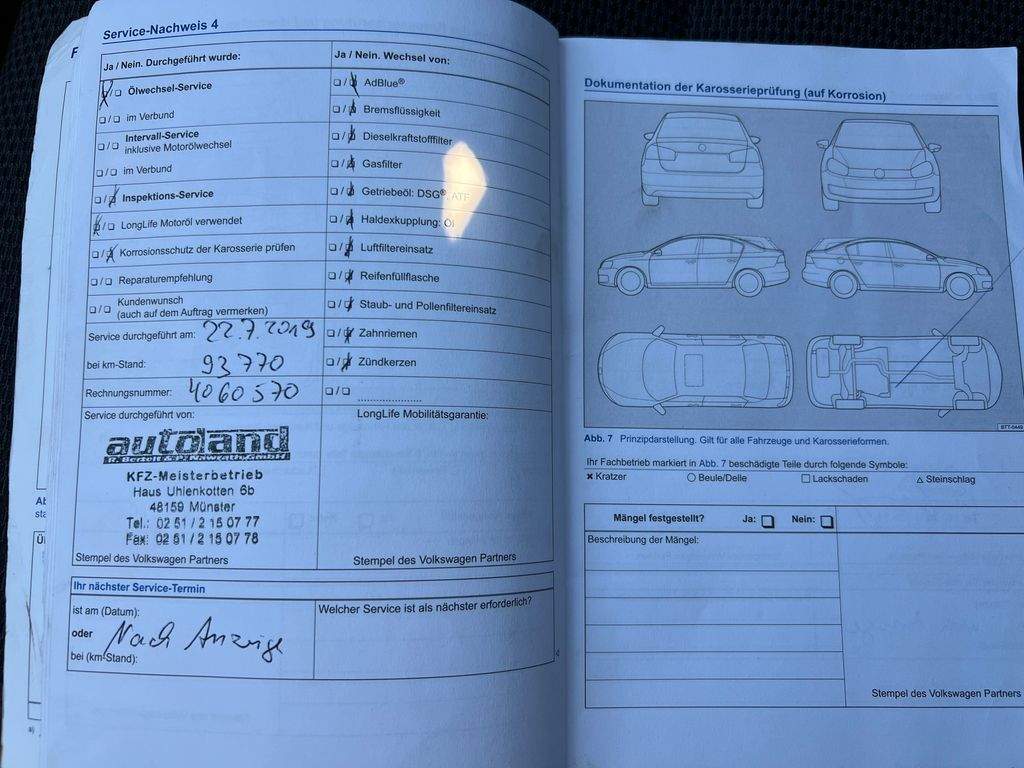 Service-Nachweis 4
Ja / Nein. Durchgeführt wurde:
Ölwechsel-Service
im Verbund
Intervall-Service
inklusive Motorölwechsel
im Verbund
Inspektions-Service
LongLife Motoröl verwendet
Korrosionsschutz der Karosserie prüfen
Reparaturempfehlung
Kundenwunsch
(auch auf dem Auftrag vermerken)
Service durchgeführt am: 22.7.2019
bei km-Stand: 93770
Rechnungsnummer: 4060570
Service durchgeführt von:
autoland
R. Bertelt & P. Nawrath GmbH
KFZ-Meisterbetrieb
Haus Uhlenkotten 6b
48159 Münster
Tel.: 02 51 / 2 15 07 77
Fax: 02 51 / 2 15 07 78
Stempel des Volkswagen Partners
Ja / Nein. Wechsel von:
AdBlue®
Bremsflüssigkeit
Dieselkraftstofffilter
Gasfilter
Getriebeöl: DSG®, ATF
Haldexkupplung: Öl
Luftfiltereinsatz
Reifenfüllflasche
Staub- und Pollenfiltereinsatz
Zahnriemen
Zündkerzen
LongLife Mobilitätsgarantie:
Stempel des Volkswagen Partners
Ihr nächster Service-Termin
ist am (Datum):
oder Nach Anzeige
bei (km-Stand):
Welcher Service ist als nächster erforderlich?
Dokumentation der Karosserieprüfung (auf Korrosion)
BTT-0449
Abb. 7 Prinzipdarstellung. Gilt für alle Fahrzeuge und Karosserieformen.
Ihr Fachbetrieb markiert in Abb. 7 beschädigte Teile durch folgende Symbole:
Kratzer Beule/Delle Lackschaden Steinschlag
Mängel festgestellt? Ja: Nein:
Beschreibung der Mängel:
Stempel des Volkswagen Partners